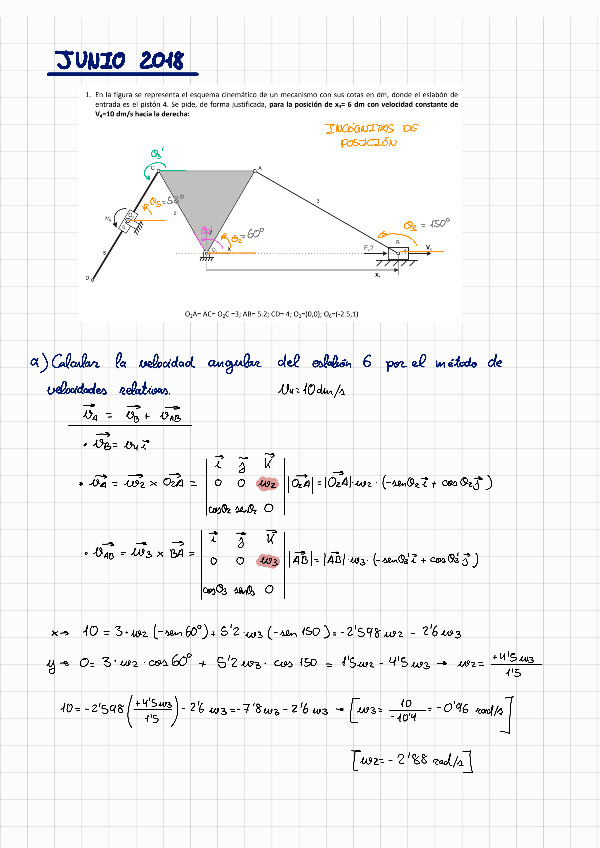 JUNIO 2018
1. En la figura se representa el esquema cinemático de un mecanismo con sus cotas en dm, donde el eslabón de
entrada es el pistón 4. Se pide, de forma justificada, para la posición de x₄= 6 dm con velocidad constante de
V₄=10 dm/s hacia la derecha:
INCÓGNITAS DE
POSICIÓN
θ₃'
C
A
θ₅=58°
2
3
θ₂=60°
θ₂ = 150°
B
F₄?
V₄
x₄
5
D
O₂A= AC= O₂C =3; AB= 5.2; CD= 4; O₂=(0,0); O₆=(-2.5,1)
a) Calcular la velocidad angular del eslabón 6 por el método de
velocidades relativas. V₄=10dm/s
v⃗A = v⃗B + v⃗AB
• v⃗B = v₄ i⃗
• v⃗A = w⃗₂ × O₂A⃗ = | i⃗ j⃗ k⃗ | 0 0 w₂ | cosθ₂ senθ₂ 0 | |O₂A⃗| = |O₂A⃗|·w₂·(-senθ₂ i⃗ + cosθ₂ j⃗)
• v⃗AB = w⃗₃ × BA⃗ = | i⃗ j⃗ k⃗ | 0 0 w₃ | cosθ₃ senθ₃ 0 | |AB⃗| = |AB⃗|·w₃·(-senθ₃ i⃗ + cosθ₃ j⃗)
x→ 10 = 3·w₂ (-sen 60°) + 5'2 w₃ (-sen 150) = -2'598 w₂ - 2'6 w₃
y→ 0 = 3·w₂·cos 60° + 5'2 w₃·cos 150 = 1'5w₂ - 4'5 w₃ → w₂ = +4'5 w₃ / 1'5
10 = -2'598 (+4'5 w₃ / 1'5) - 2'6 w₃ = -7'8 w₃ - 2'6 w₃ → [w₃ = 10 / -10'4 = -0'96 rad/s]
[w₂ = -2'88 rad/s]